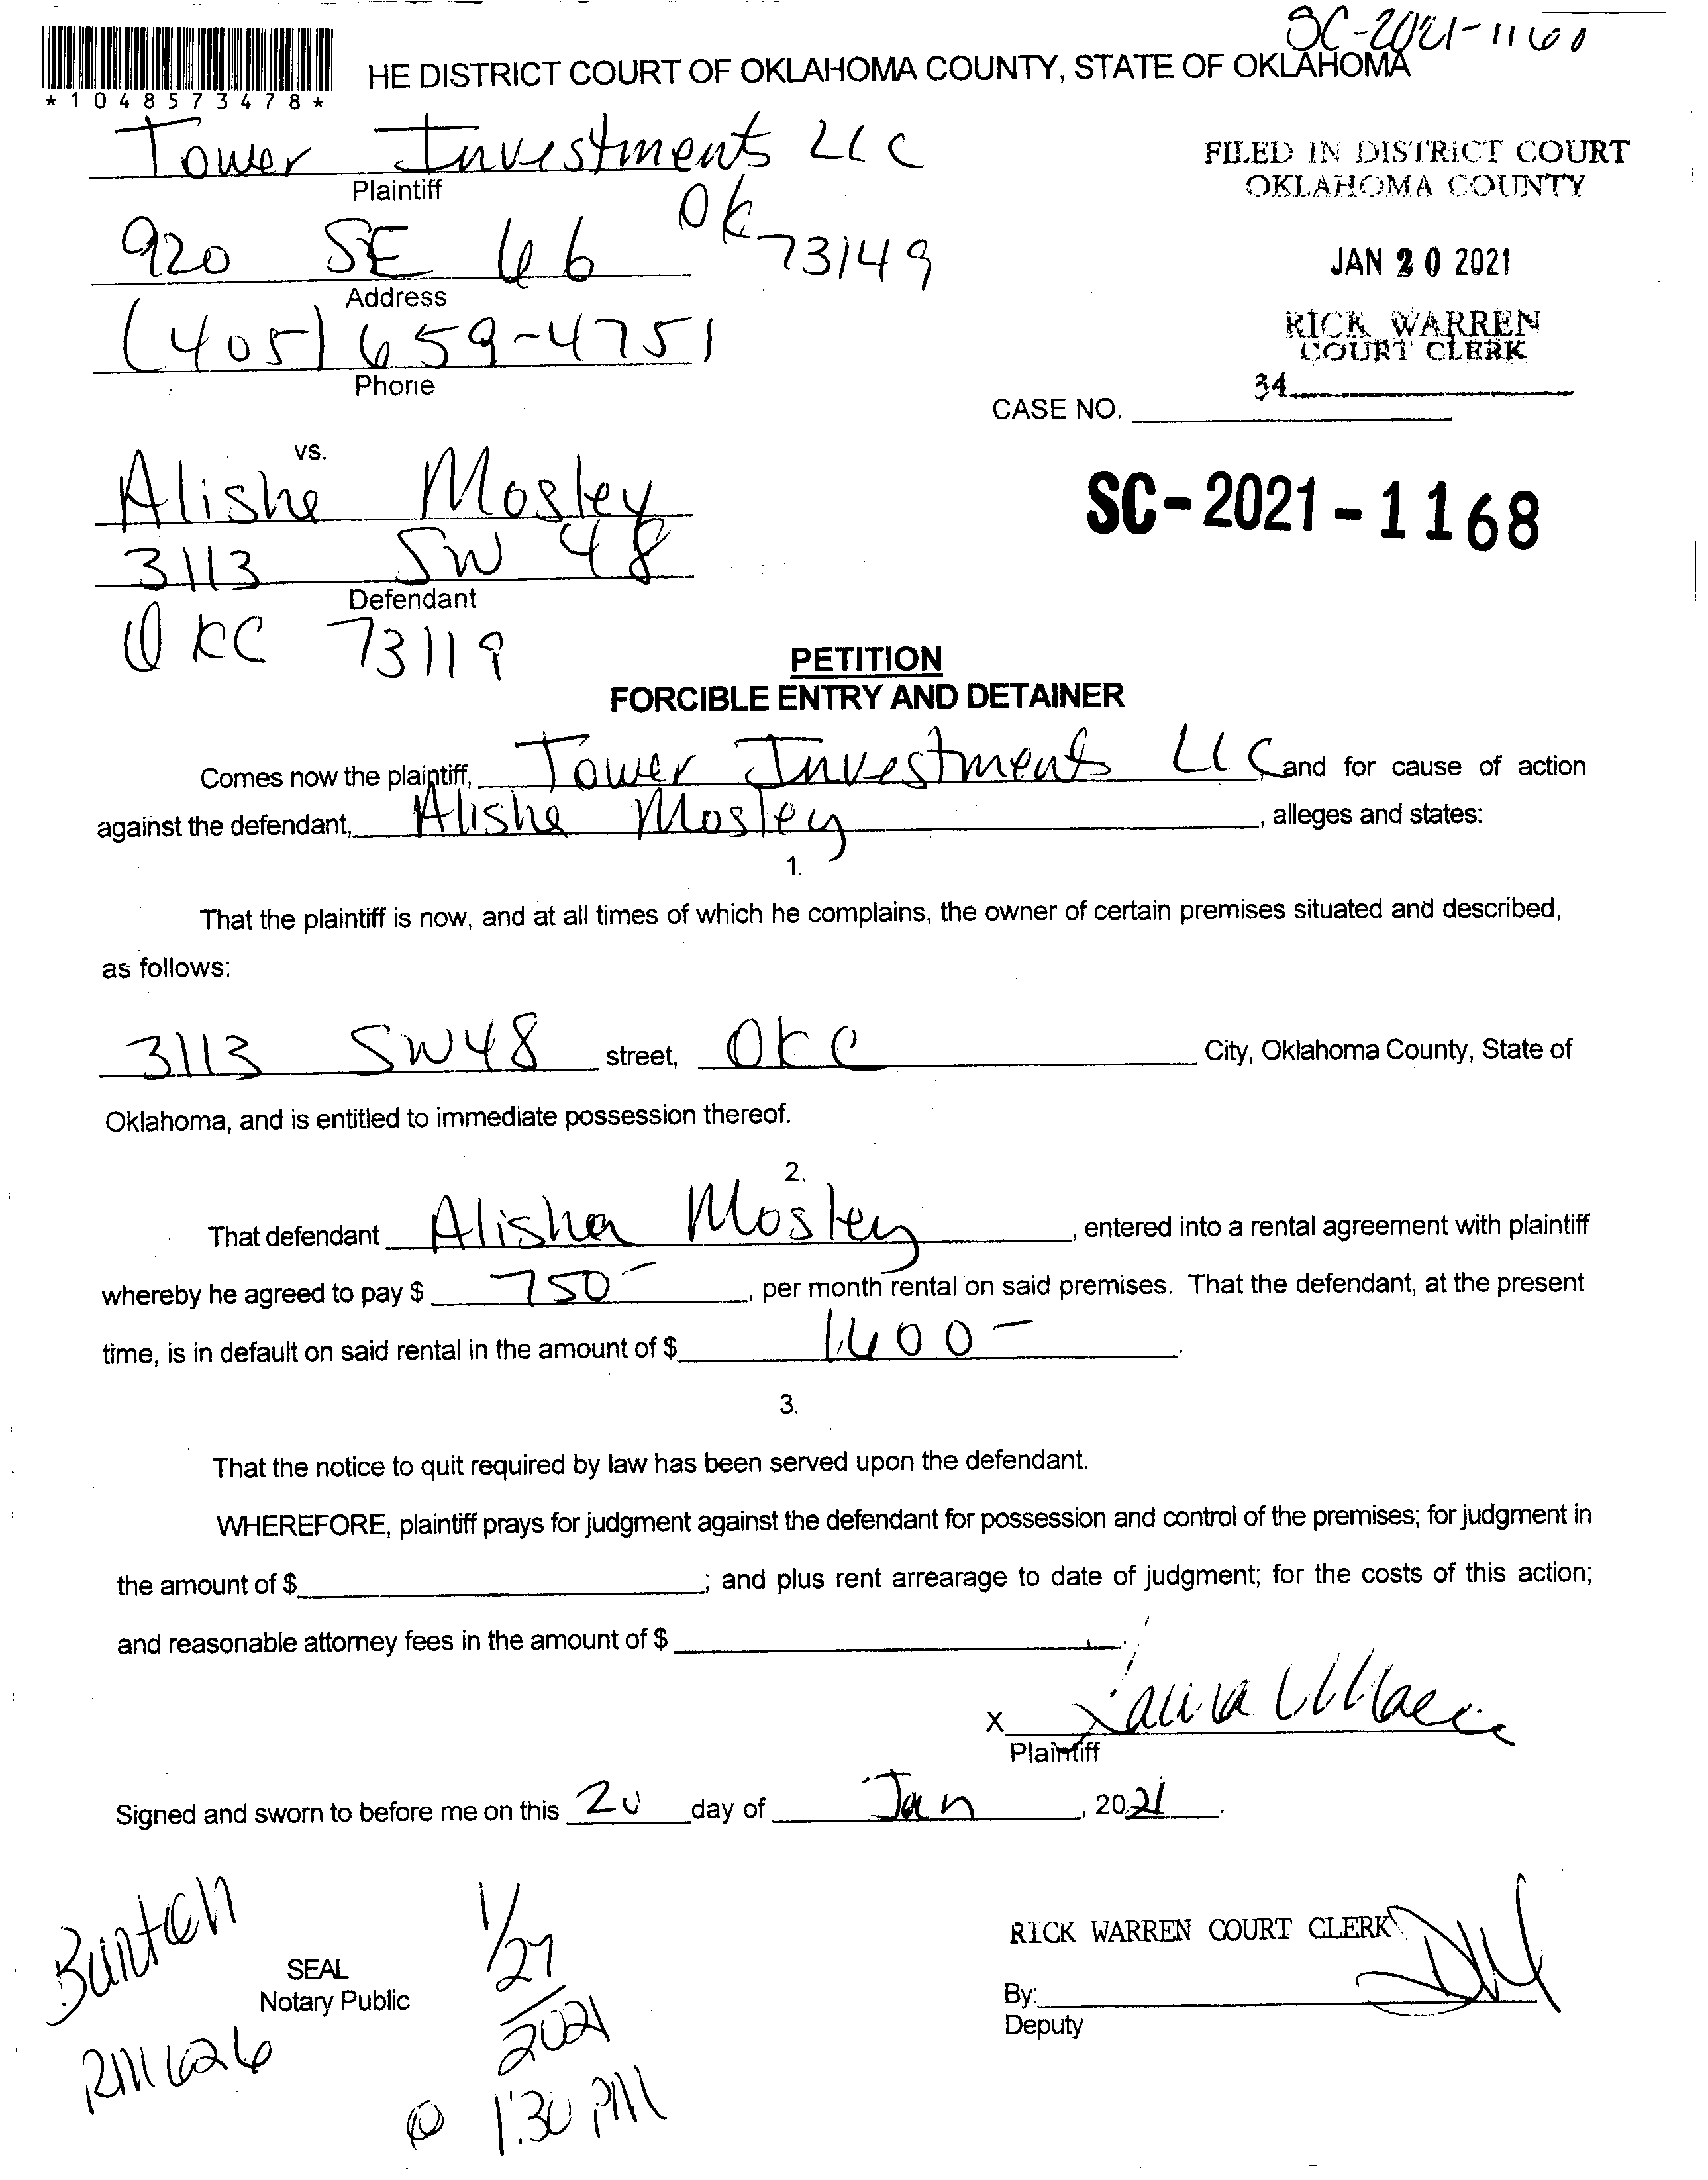 SC-2021-1160
*1048573478*
HE DISTRICT COURT OF OKLAHOMA COUNTY, STATE OF OKLAHOMA
Tower Investments LLC
Plaintiff
FILED IN DISTRICT COURT
OKLAHOMA COUNTY
920 SE 66 OK 73149
Address
JAN 20 2021
(405) 659-4751
Phone
RICK WARREN
COURT CLERK
34
CASE NO.
vs.
Alisha Mosley
3113 SW 48
Defendant
OKC 73119
SC-2021-1168
PETITION
FORCIBLE ENTRY AND DETAINER
Comes now the plaintiff, Tower Investments LLC and for cause of action
against the defendant, Alisha Mosley, alleges and states:
1.
That the plaintiff is now, and at all times of which he complains, the owner of certain premises situated and described,
as follows:
3113 SW48 street, OKC City, Oklahoma County, State of
Oklahoma, and is entitled to immediate possession thereof.
2.
That defendant Alisha Mosley, entered into a rental agreement with plaintiff
whereby he agreed to pay $ 750-, per month rental on said premises. That the defendant, at the present
time, is in default on said rental in the amount of $ 1600-.
3.
That the notice to quit required by law has been served upon the defendant.
WHEREFORE, plaintiff prays for judgment against the defendant for possession and control of the premises; for judgment in
the amount of $; and plus rent arrearage to date of judgment; for the costs of this action;
and reasonable attorney fees in the amount of $.
X Laura
Plaintiff
Signed and sworn to before me on this 20 day of Jan, 2021.
RM 626
SEAL
Notary Public
1/27/2021
@ 1:30 PM
RICK WARREN COURT CLERK
By:
Deputy